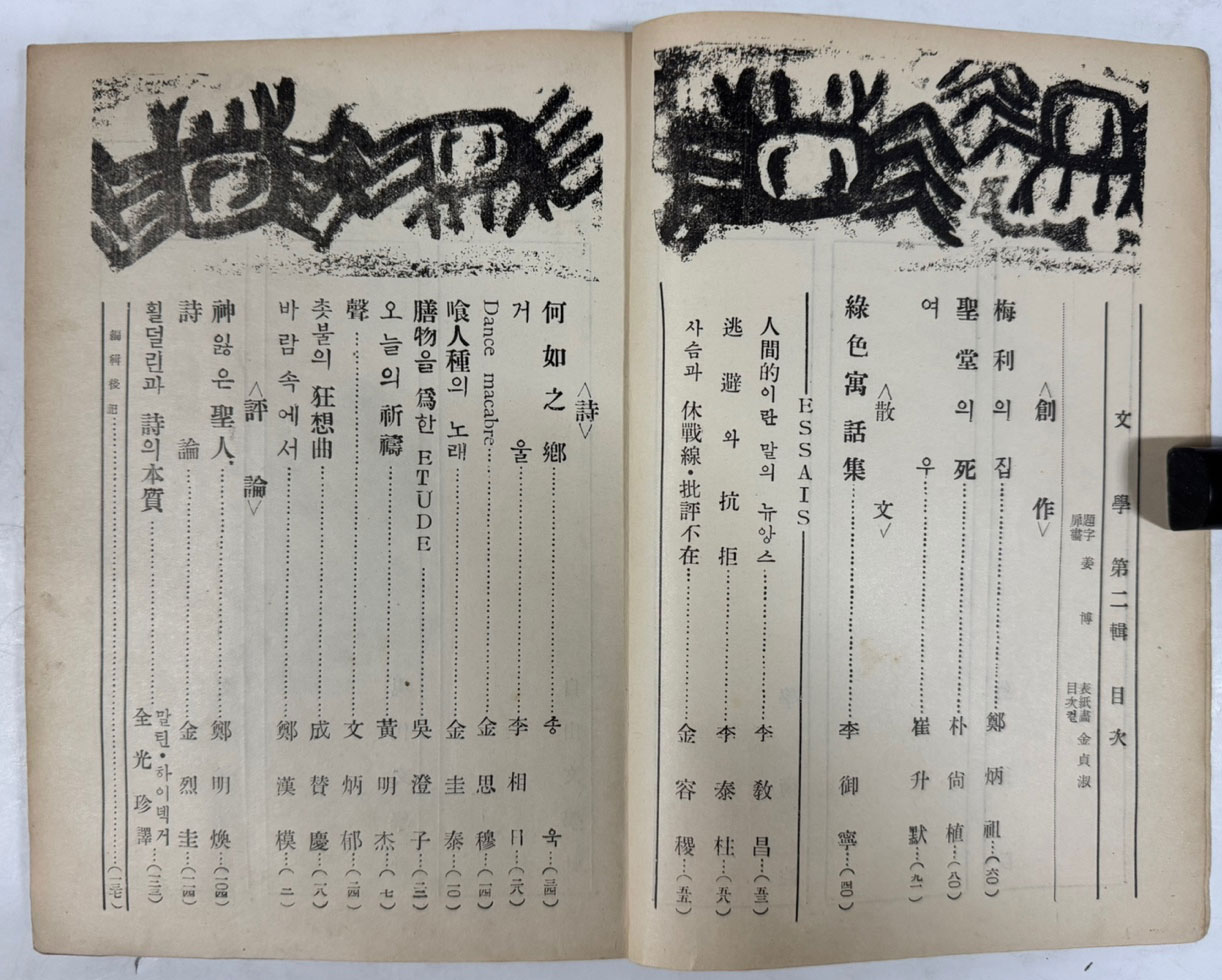 文學 第二輯 目次
題字 扉畵 姜博
表紙畵 目次컽 金貞淑
<創作>
梅利의 집 鄭炳祖 (六0)
聖堂의 死 朴尙植 (八0)
여우 崔升默 (九一)
<散文>
綠色寓話集 李御寧 (四0)
ESSAIS
人間的이란 말의 뉴앙스 李敎昌 (五三)
逃避와 抗拒 李泰柱 (五八)
사슴과 休戰線·批評不在 金容稷 (五五)
<詩>
何如之鄕 송욱 (三四)
거울 李相日 (二八)
Dance macabre 金思穆 (一四)
喰人種의 노래 金圭泰 (一0)
膳物을 爲한 ETUDE 吳澄子 (二二)
오늘의 祈禱 黃明杰 (七)
聲 文炳郁 (二四)
촛불의 狂想曲 成賛慶 (一八)
바람 속에서 鄭漢模 (二)
<評論>
神잃은 聖人、 鄭明煥 (一0四)
詩論 金烈圭 (一一四)
횔덜린과 詩의 本質 말틴·하이덱거 全光珍譯 (一二三)
編輯後記 (一三七)